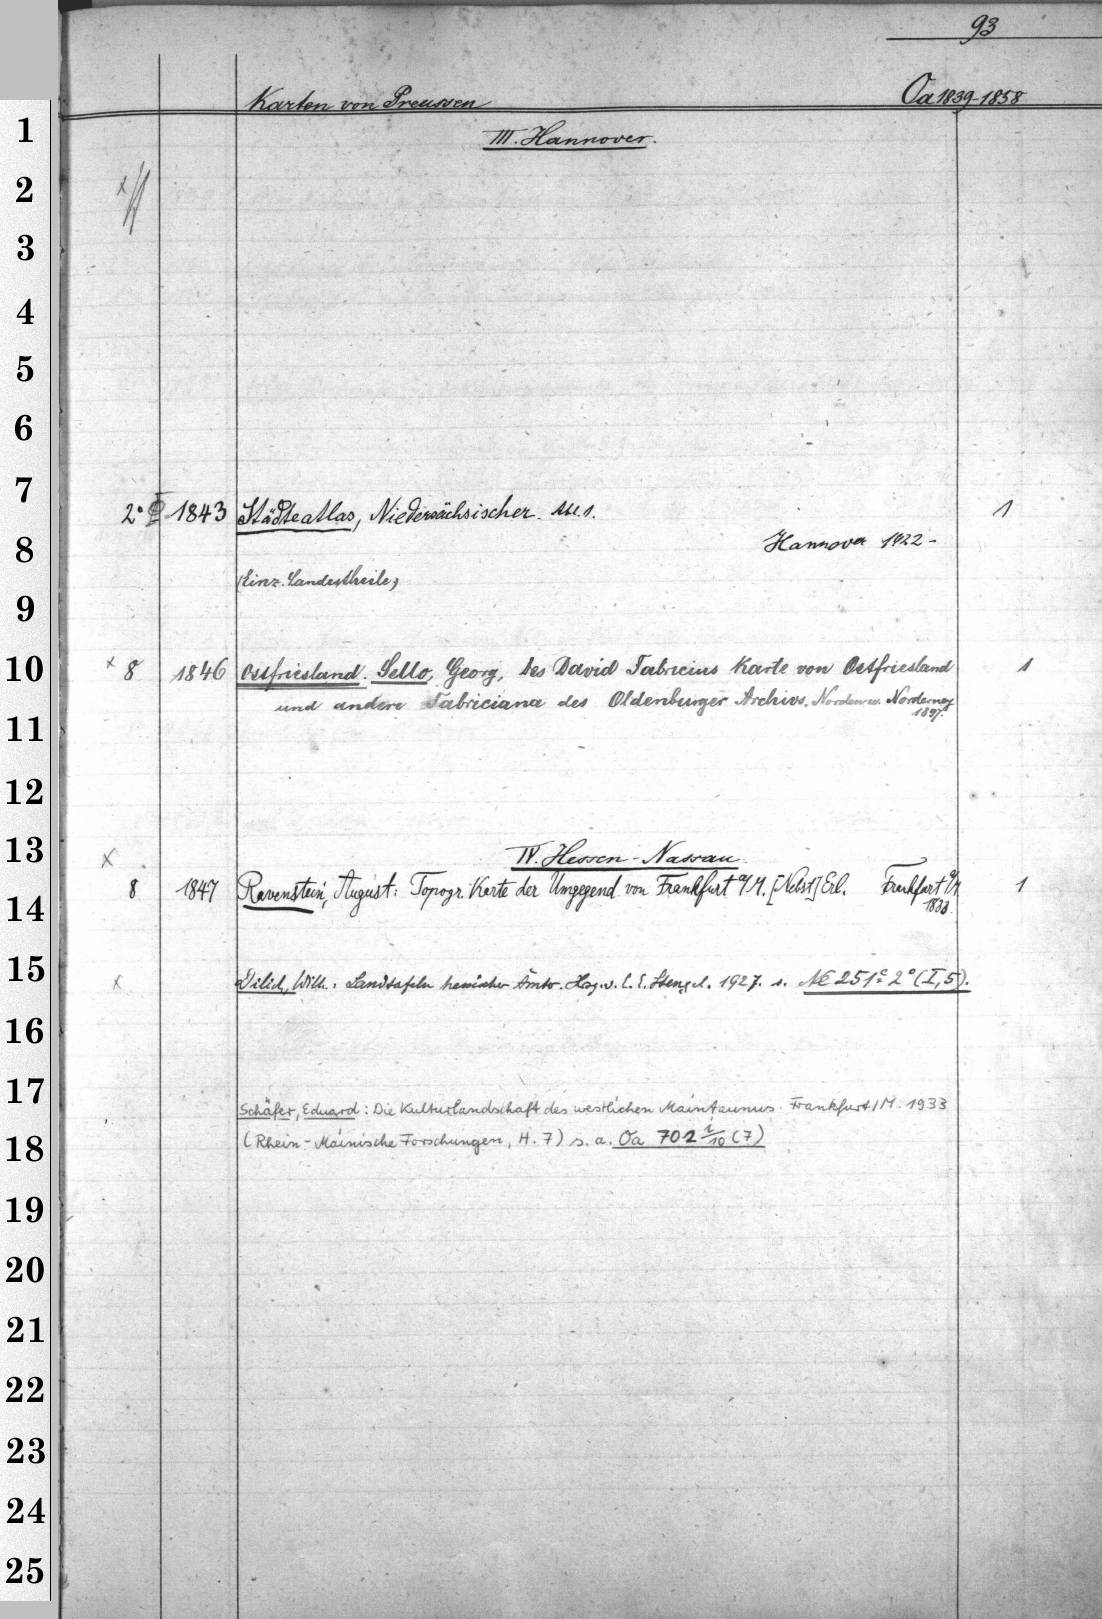 93
Karten von Preussen Oa 1839-1858
1
III. Hannover.
2
3
4
5
6
7
2° 1843 Städteatlas, Niedersächsischer. 1
8
Hannover 1922-
(Einz. Landestheile)
9
10
× 8 1846 Ostfriesland. Sello, Georg, Des David Fabricius Karte von Ostfriesland 1
und andere Fabriciana des Oldenburger Archivs. Norden u. Norderney
1897.
11
12
13
× IV. Hessen-Nassau.
8 1847 Ravenstein, August: Topogr. Karte der Umgegend von Frankfurt a/M. [Nebst] Erl. Frankfurt a/M 1
1833.
14
15
× Dilich, Wilh.: Landtafeln hessischer Ämter. Hsg. v. E. E. Stengel. 1927. s. NE 251c 2° (I,5).
16
17
Schäfer, Eduard: Die Kulturlandschaft des westlichen Maintaunus. Frankfurt/M. 1933
18
(Rhein-Mainische Forschungen, H. 7) s. a. Oa 702 i/10 (7)
19
20
21
22
23
24
25